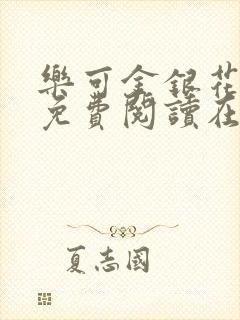 樂可金銀花
免費閱讀在
夏志國